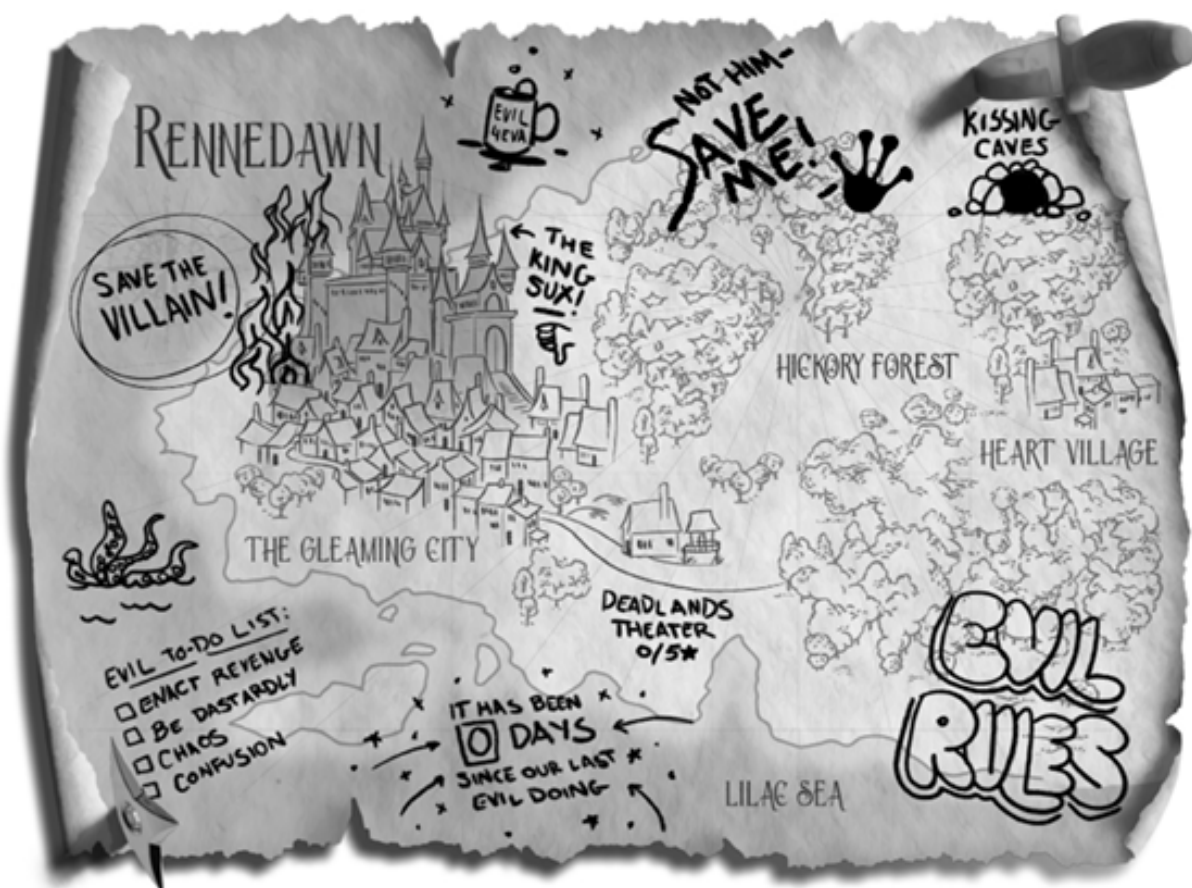 RENNEDAWN
EVIL
4EVA
NOT HIM-
SAVE
ME!
KISSING
CAVES
SAVE THE
VILLAIN!
THE
KING
SUX!
HICKORY FOREST
HEART VILLAGE
THE GLEAMING CITY
DEADLANDS
THEATER
0/5★
EVIL TO-DO LIST:
ENACT REVENGE
BE DASTARDLY
CHAOS
CONFUSION
IT HAS BEEN
0 DAYS
SINCE OUR LAST
EVIL DOING
LILAC SEA
EVIL
RULES